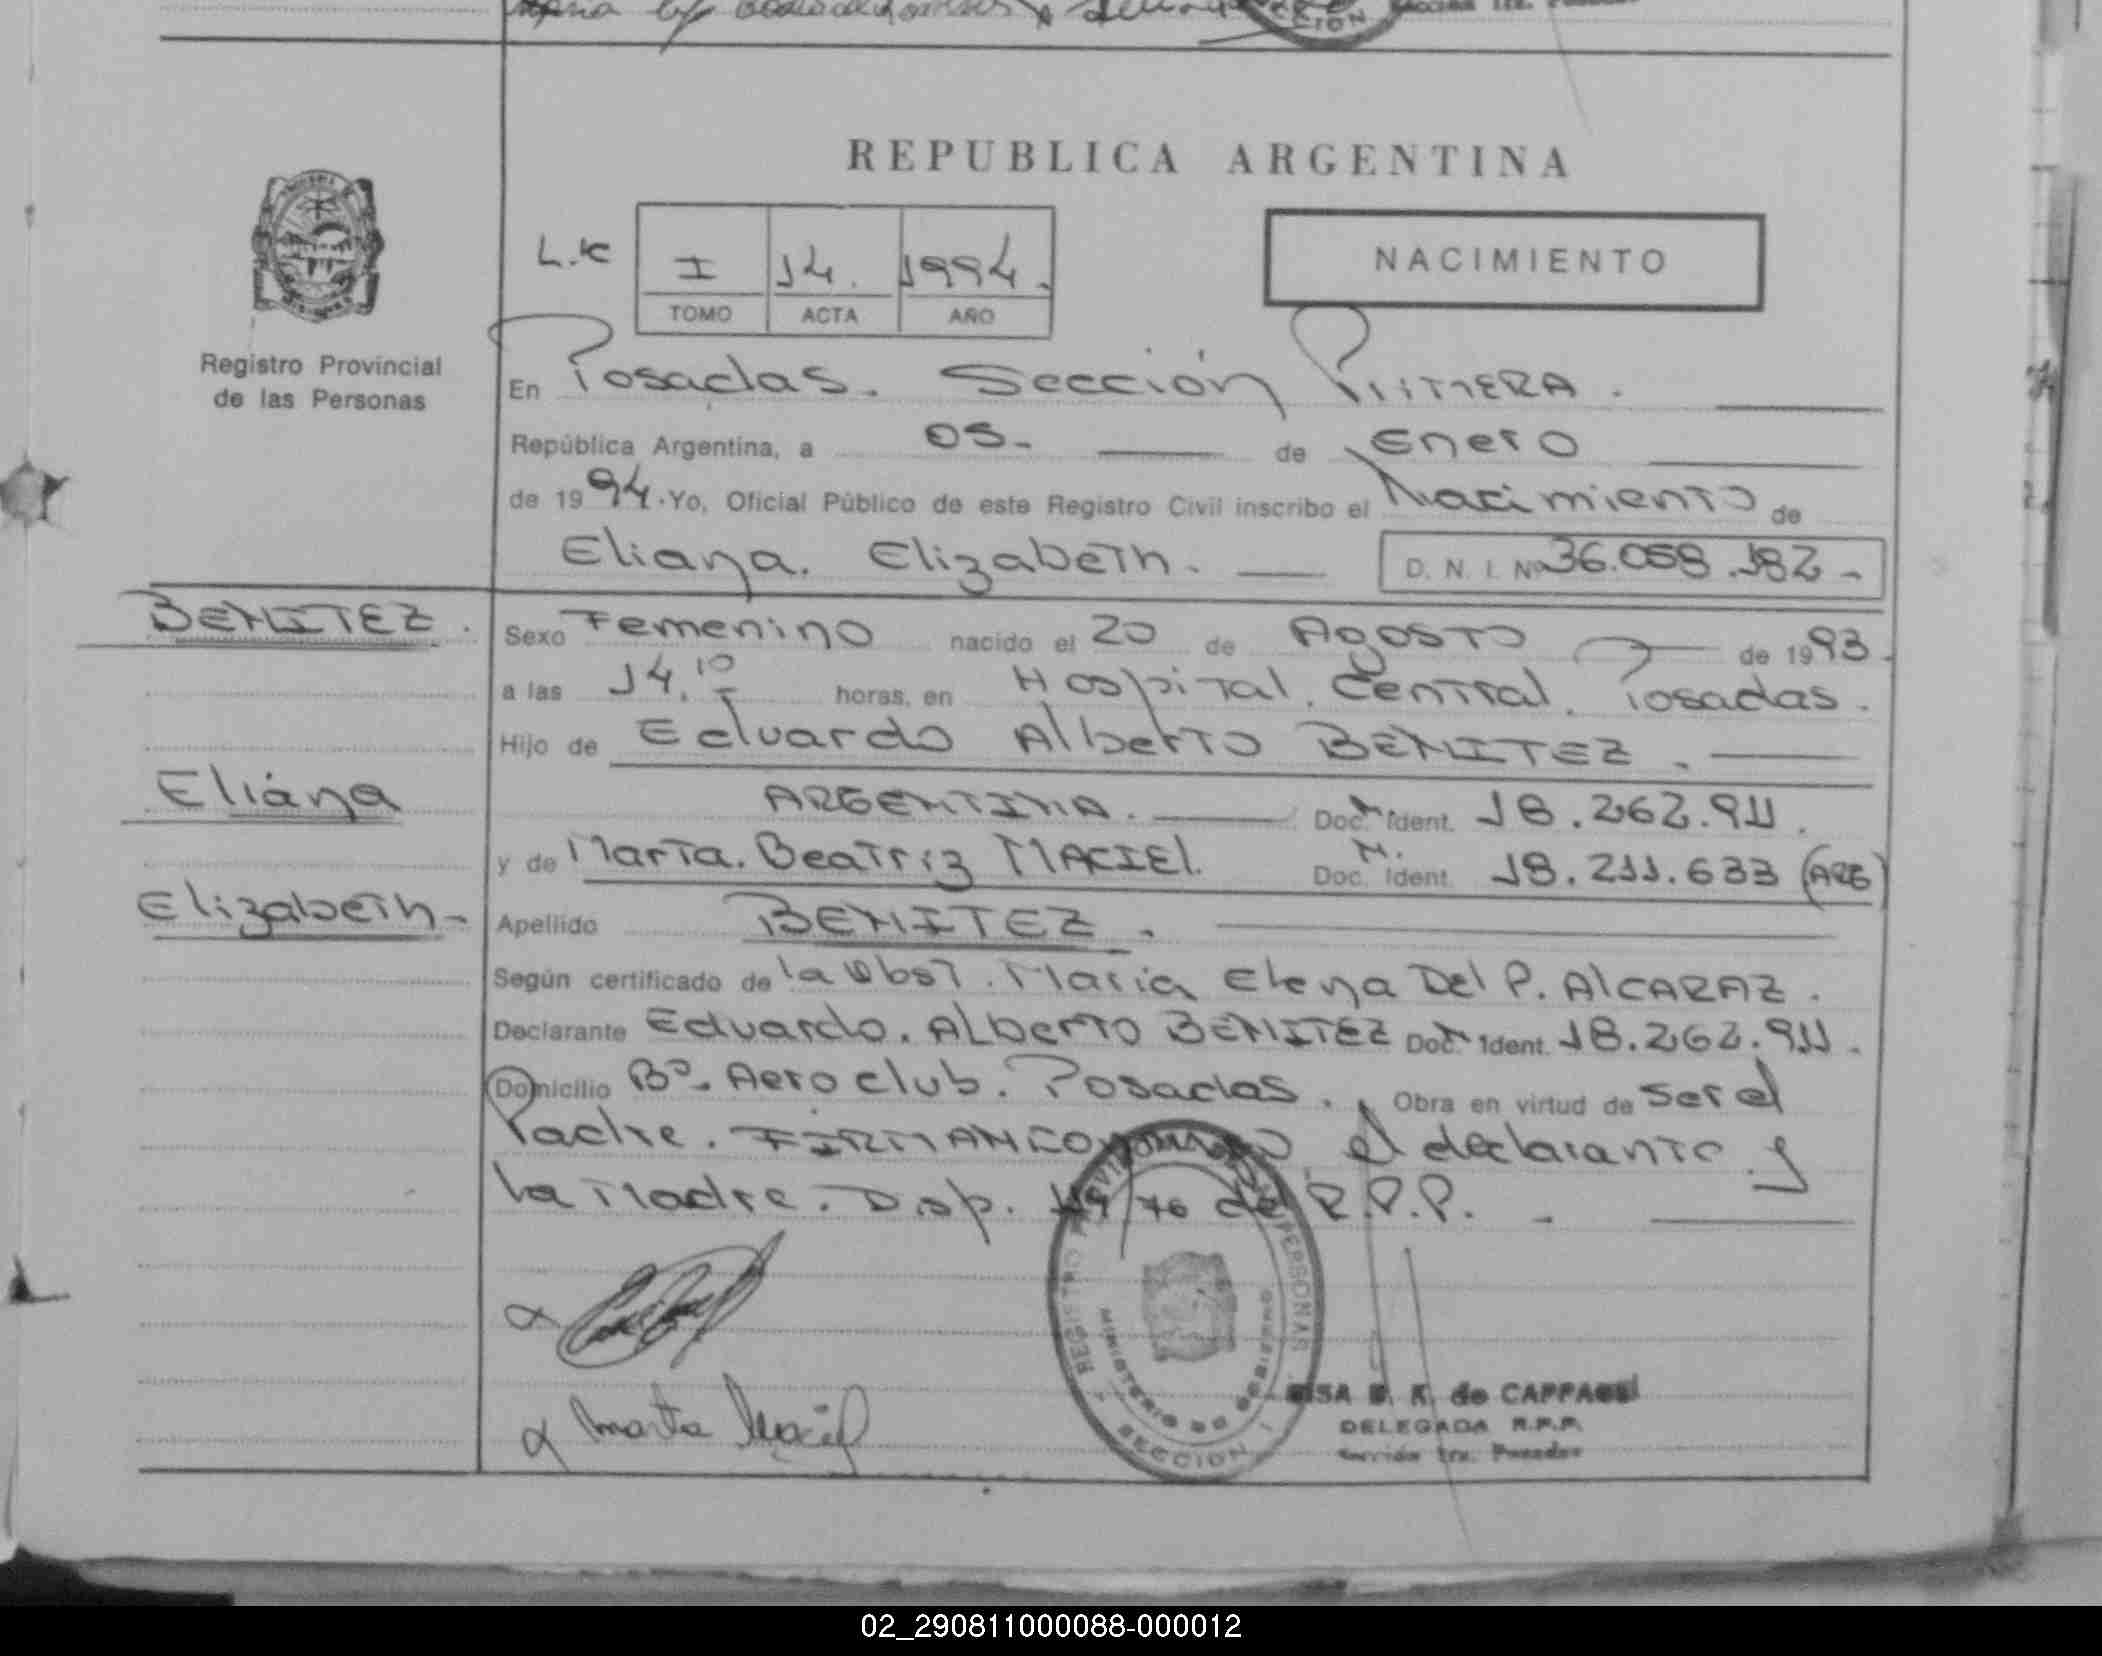 REPUBLICA ARGENTINA
L.K I 14. 1994.
TOMO ACTA AÑO
NACIMIENTO
Registro Provincial
de las Personas
En Posadas. Sección PRIMERA.
República Argentina, a 05. de Enero
de 1994. Yo, Oficial Público de este Registro Civil inscribo el Nacimiento de
Eliana. Elizabeth. D. N. I. Nº 36.058.182-
BENITEZ.
Sexo Femenino nacido el 20 de Agosto de 1993.
a las 14.10 horas, en Hospital. Central. Posadas.
Hijo de Eduardo Alberto BENITEZ.
Eliana
ARGENTINA. Doc. N. Ident. 18.262.911.
y de Marta. Beatriz MACIEL. Doc. N. Ident. 18.211.633 (ARG)
Elizabeth-
Apellido BENITEZ.
Según certificado de la Obst. Maria Elena Del P. AlCARAZ.
Declarante Eduardo. Alberto BENITEZ Doc. N. Ident. 18.262.911.
Domicilio Bº. Aeroclub. Posadas. Obra en virtud de ser el
Padre. FIRMAN el declarante y
la Madre. Disp. 76 del R.P.P.
REGISTRO PERSONAS
MINISTERIO DE GOBIERNO
SECCION I
Marta Maciel
de CAPPA
DELEGADA R.P.P.
Sección 1ra. Posadas
02_290811000088-000012